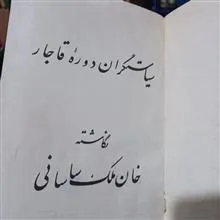 سیاستگران دورهٔ قاجار
نگاشته
خان ملک ساسانی